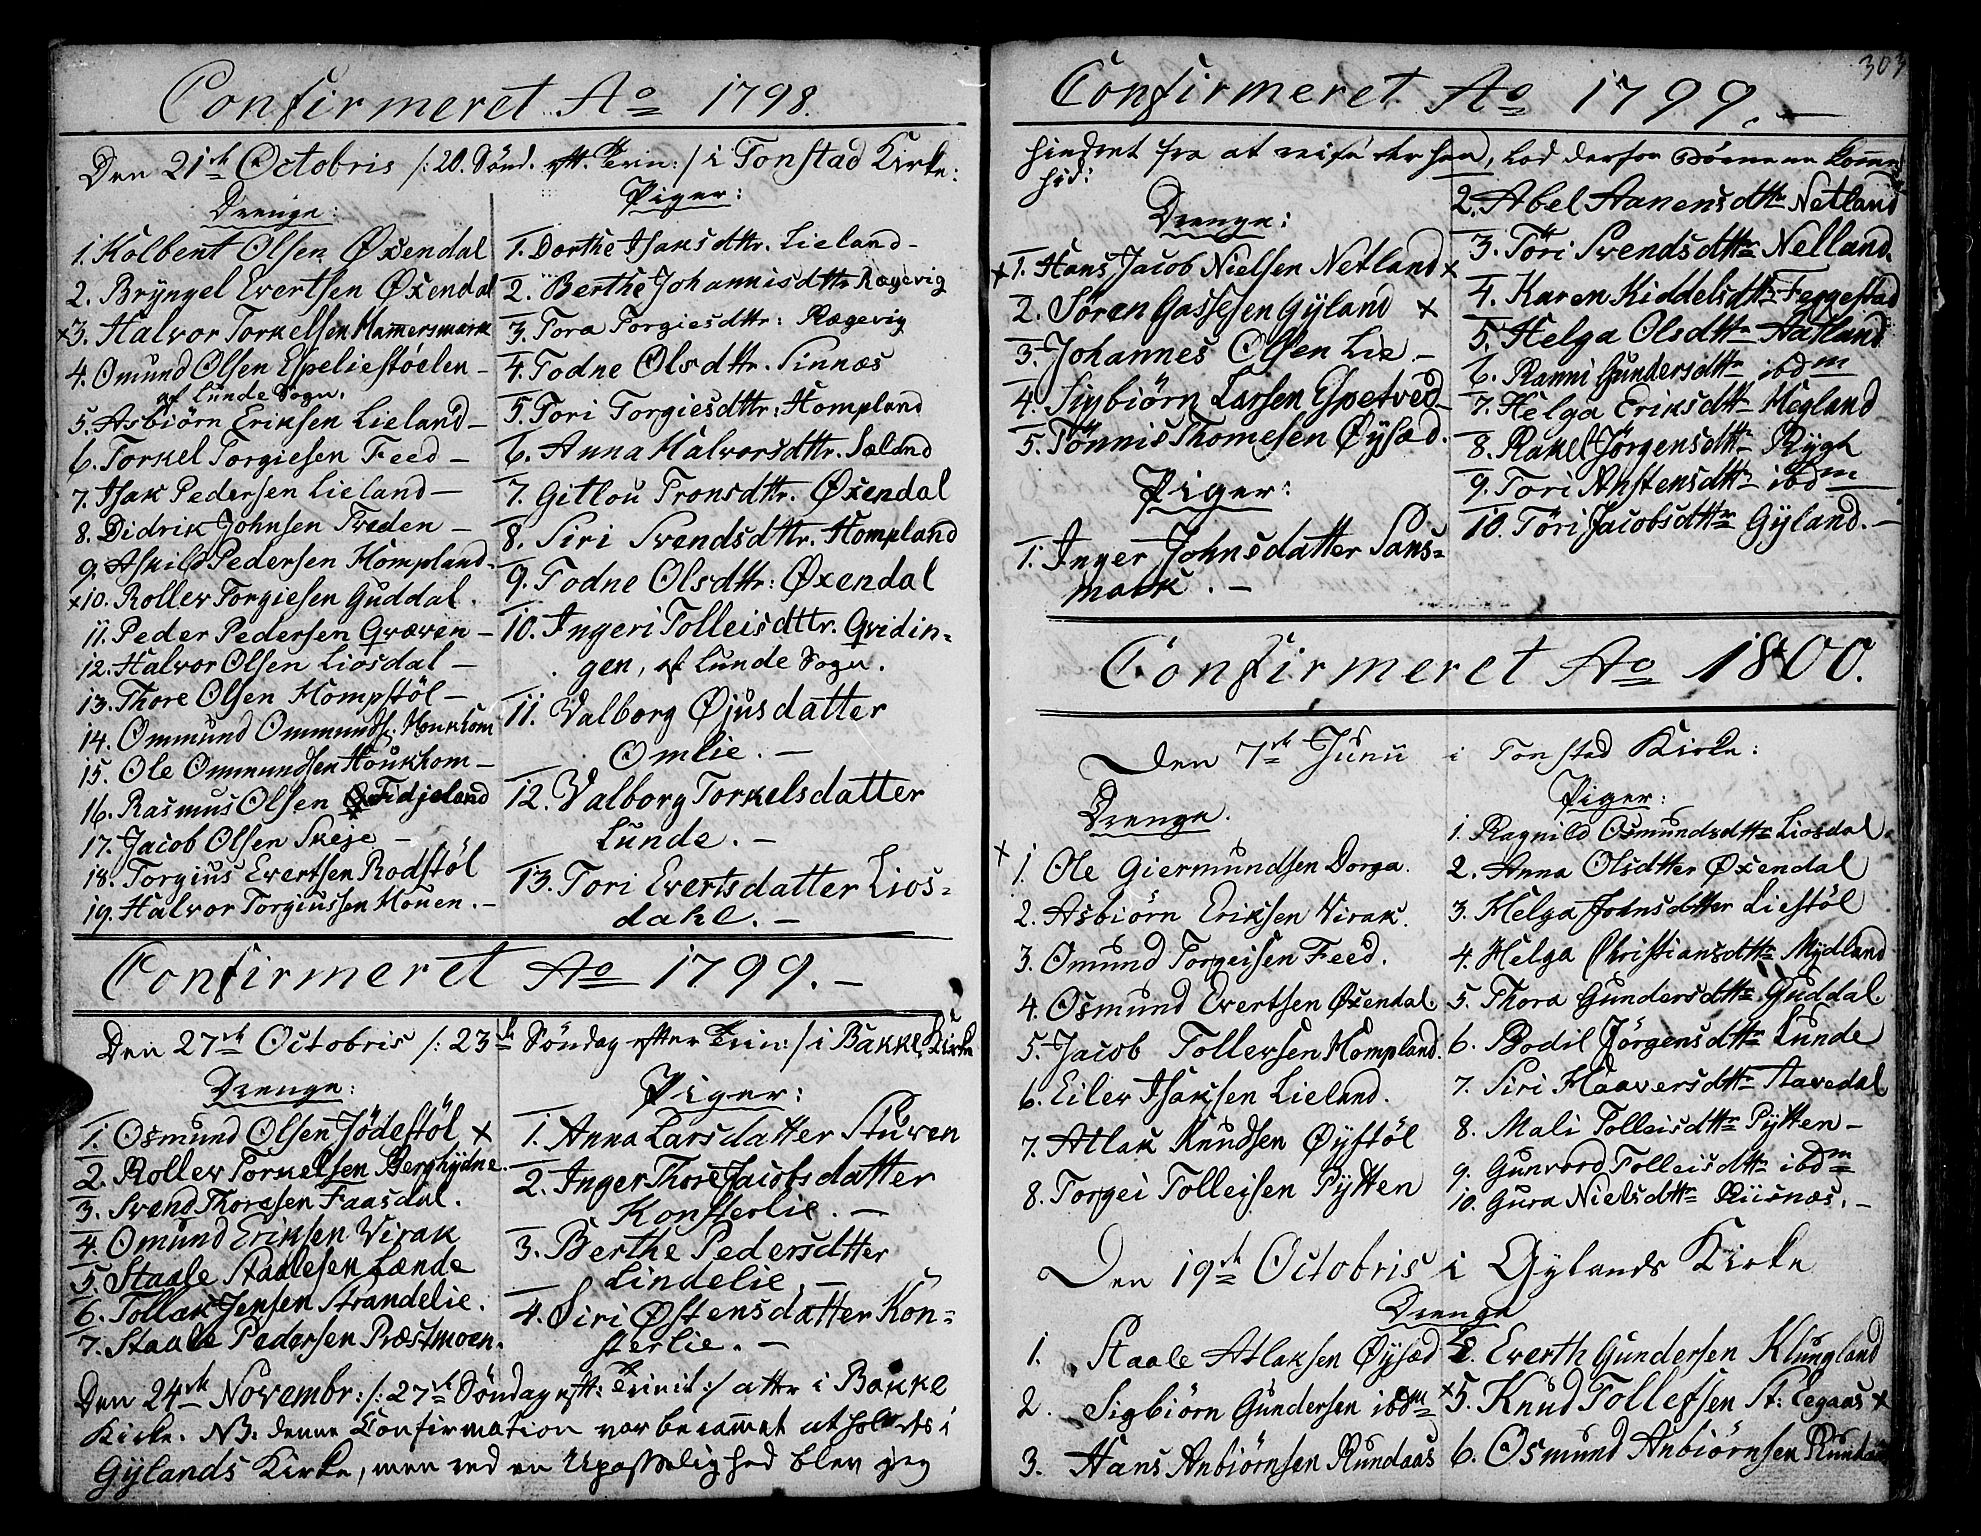 Confirmeret Ao 1798.
Den 21de Octobris /: 20. Sønd. eft. Trin: / i Tonstad Kirke:
Drenge:
1. Kolbent Olsen Øxendal
2. Bryngel Evertsen Øxendal
×3. Halvor Torkelsen Hamersmark
4. Omund Olsen Espeliestøelen –
af Lunde Sogn.
5. Asbiørn Eriksen Lieland –
6. Torkel Torgiesen Feed –
7. Isak Pedersen Lieland –
8. Didrik Johnsen Træden –
9. Askild Pedersen Hompland –
×10. Rollev Torgiesen Guddal.
11. Peder Pedersen Qvæven –
12. Halvor Olsen Liosdal –
13. Thore Olsen Hompstöl –
14. Ommund Ommunds: Houkhom
15. Ole Ommundsen Houkhom –
16. Rasmus Olsen Fidjeland
17. Jacob Olsen Skeje –
18. Torgius Evertsen Rodstöl
19. Halvor Torgiussen Mouen. –
Piger:
1. Dorthe Isaksdttr. Lieland –
2. Berthe Johannisdttr Rægevig
3. Tora Torgiesdttr: Rægevig
4. Todne Olsdttr. Sinnæs
5. Tori Torgiesdttr: Hompland
6. Anna Halvorsdttr. Sæland
7. Gitlou Tronsdttr. Øxendal
8. Siri Svendsdttr. Hompland
9. Todne Olsdttr: Øxendal
10. Ingeri Tolleisdttr. Qvidin=
gen, af Lunde Sogn.
11. Valborg Øjusdatter
Omlie. –
12. Valborg Torkelsdatter
Lunde. –
13. Tori Evertsdatter Lios=
dahl. –
Confirmeret Ao 1799. –
Den 27de Octobris /: 23de Søndag efter Trin: / i Bakke Kirke
Drenge:
1. Osmund Olsen Jödestöl ×
2. Rollev Torkelsen Berghydne.
3. Svend Thoresen Faasdal.
4. Omund Eriksen Virak
5. Staale Staalesen Lænde
6. Tollak Jensen Strandelie.
7. Staale Pedersen Præstmoen.
Piger:
1. Anna Larsdatter Stuven
2. Inger Thore Jacobsdatter
Konsterlie. –
3. Berthe Pedersdtter
Lindelie. –
4. Siri Østensdatter Kon=
sterlie. –
Den 24de Novembr: /: 27de Søndag eft: Trinit: / atter i Bakke
Kirke. NB. denne Confirmation var berammet at holdes i
Gylands Kirke, men ved en Upasselighed blev jeg
303
Confirmeret Ao 1799. –
hindret fra at reise derhen, lod derfor Børnene komme
hid:
Drenge:
×1. Hans Jacob Nielsen Netland ×
2. Søren Gassesen Gyland ×
3. Johannes Olsen Lie –
4. Sigbiörn Larsen Espetved
5. Tönnis Thomesen Øysæd.
Piger:
1. Inger Johnsdatter Sans=
mark. –
2. Abel Aanensdttr Netland
3. Töri Svendsdttr Netland.
4. Karen Kiddelsdttr Fergestad
5. Helga Olsdttr Aatland
6. Ranni Gundersdttr ibdm
7. Helga Eriksdttr Megland
8. Rakel Jörgensdttr Rygh
9. Tori Anstensdttr ibdm
10. Töri Jacobsdttr Gyland. –
Confirmeret Ao 1800.
Den 7de Junii i Tonstad Kirke:
Drenge.
×1 Ole Giermundsen Dorga.
2. Asbiörn Eriksen Virak.
3. Omund Torgeisen Feed.
4 Osmund Evertsen Øxendal.
5. Jacob Tollevsen Hompland.
6. Eilev Isaksen Lieland.
7. Atlak Knudsen Øystöl
8. Torgei Tolleisen Pytten
Piger:
1. Ragnild Osmundsdttr Liosdal.
2. Anna Olsdtter Øxendal
3. Helga Johnsdatter Liestöl
4. Helga Christiansdttr Mydland
5. Thora Gundersdttr Guddal.
6. Bodil Jörgensdttr Lunde
7. Siri Haaversdttr Aavedal
8. Mali Tolleisdttr Pytten –
9. Gunvord Tolleisdttr ibdm
10. Gura Nielsdttr Riisnæs. –
Den 19de Octobris i Gylands Kirke
Drenge
1. Staale Atlaksen Øysæd
2. Sigbiörn Gundersen ibdm
3. Hans Anbiörnsen Rundaas
4. Everth Gundersen Klungland
×5. Knud Tollefsen St: Eegaas ×
6. Osmund Anbiörnsen Rundaas